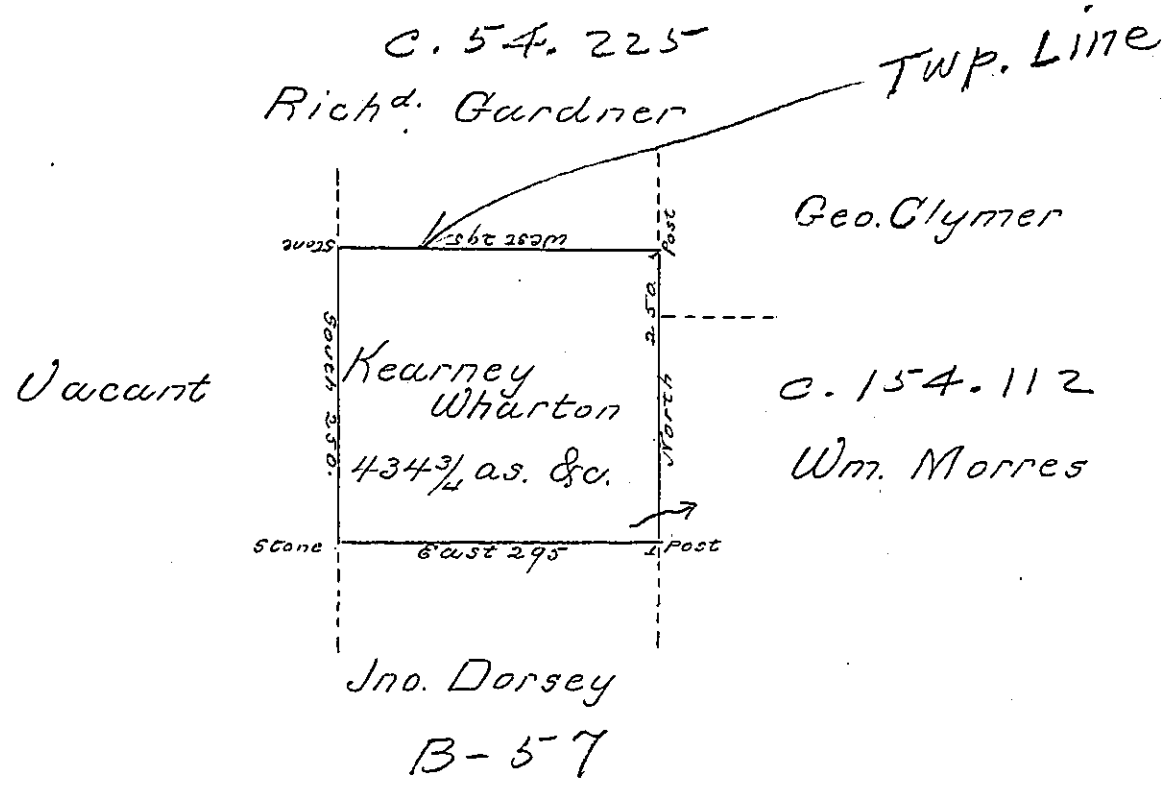 C. 54. 225
Twp. Line
Richd. Gardner
Geo. Clymer
Stone
West 295
Post
South 250.
North 250
Vacant
Kearney
Wharton
434¾ as. &c.
C. 154. 112
Wm. Morres
Stone
East 295
Post
Jno. Dorsey
B-57